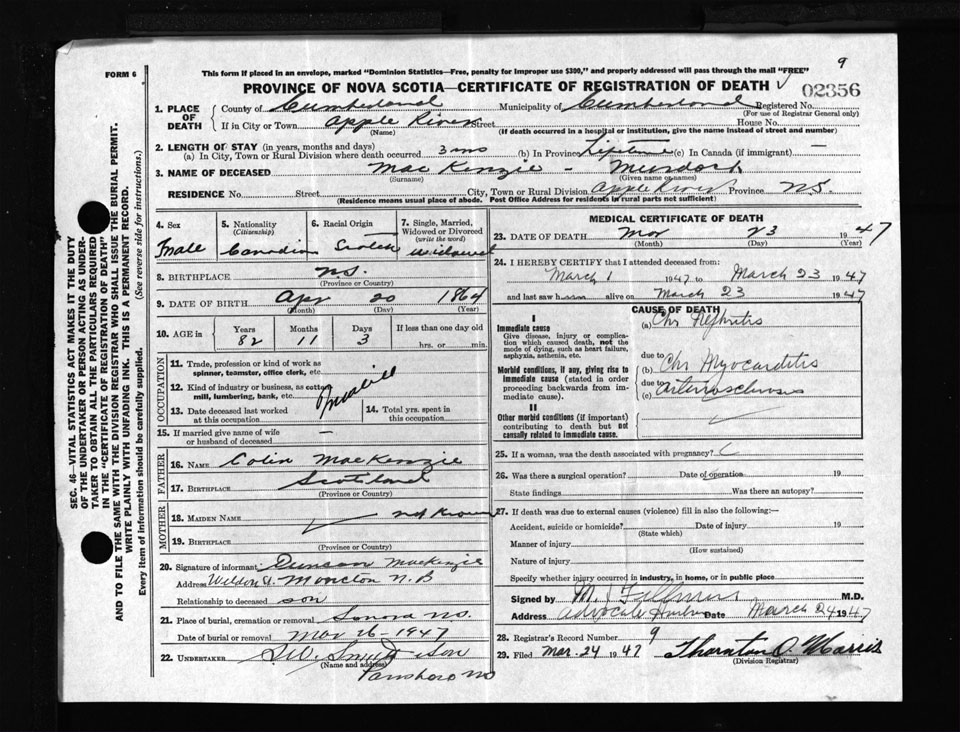 9
This form if placed in an envelope, marked "Dominion Statistics—Free, penalty for improper use $300," and properly addressed will pass through the mail "FREE"
FORM 6
PROVINCE OF NOVA SCOTIA—CERTIFICATE OF REGISTRATION OF DEATH
02356
1. PLACE OF DEATH
County of Cumberland Municipality of Cumberland Registered No.
(For use of Registrar General only)
If in City or Town Apple River Street House No.
(Name) (If death occurred in a hospital or institution, give the name instead of street and number)
2. LENGTH OF STAY (in years, months and days)
(a) In City, Town or Rural Division where death occurred 3 mo (b) In Province Lifetime (c) In Canada (if immigrant) —
3. NAME OF DECEASED MacKenzie - Murdoch
(Surname) (Given name or names)
RESIDENCE No. Street City, Town or Rural Division Apple River Province N.S.
(Residence means usual place of abode. Post Office Address for residents in rural parts not sufficient)
4. Sex
Male
5. Nationality
(Citizenship)
Canadian
6. Racial Origin
Scotch
7. Single, Married, Widowed or Divorced
(write the word)
Widowed
8. BIRTHPLACE N.S.
(Province or Country)
9. DATE OF BIRTH Apr 20 1864
(Month) (Day) (Year)
10. AGE in
Years 82
Months 11
Days 3
If less than one day old
hrs. or min.
OCCUPATION
11. Trade, profession or kind of work as spinner, teamster, office clerk, etc.
12. Kind of industry or business, as cotton mill, lumbering, bank, etc.
13. Date deceased last worked at this occupation
14. Total yrs. spent in this occupation
15. If married give name of wife or husband of deceased —
FATHER
16. NAME Colin MacKenzie
17. BIRTHPLACE Scotland
(Province or Country)
MOTHER
18. MAIDEN NAME not known
19. BIRTHPLACE
(Province or Country)
20. Signature of informant Duncan MacKenzie
Address Weldon St Moncton N.B
Relationship to deceased son
21. Place of burial, cremation or removal Sonora N.S.
Date of burial or removal Mar 26 - 1947
22. UNDERTAKER
(Name and address)
Parrsboro NS
MEDICAL CERTIFICATE OF DEATH
23. DATE OF DEATH Mar 23 1947
(Month) (Day) (Year)
24. I HEREBY CERTIFY that I attended deceased from:
March 1 1947 to March 23 1947
and last saw him alive on March 23 1947
CAUSE OF DEATH
I
Immediate cause
Give disease, injury or complication which caused death, not the mode of dying, such as heart failure, asphyxia, asthenia, etc.
(a) Chr Nephritis
Morbid conditions, if any, giving rise to immediate cause (stated in order proceeding backwards from immediate cause).
due to
(b) Chr Myocarditis
due to
(c) arteriosclerosis
II
Other morbid conditions (if important) contributing to death but not causally related to immediate cause.
25. If a woman, was the death associated with pregnancy?
26. Was there a surgical operation? Date of operation 19
State findings Was there an autopsy?
27. If death was due to external causes (violence) fill in also the following:—
Accident, suicide or homicide? Date of injury 19
(State which)
Manner of injury
(How sustained)
Nature of injury
Specify whether injury occurred in industry, in home, or in public place
Signed by M. J. Fillmore M.D.
Address Advocate Harbour Date March 24 1947
28. Registrar's Record Number 9
29. Filed Mar. 24 1947 Thornton O. Morris
(Division Registrar)
SEC. 46—VITAL STATISTICS ACT MAKES IT THE DUTY
OF THE UNDERTAKER OR PERSON ACTING AS UNDERTAKER TO OBTAIN ALL THE PARTICULARS REQUIRED
IN THE "CERTIFICATE OF REGISTRATION OF DEATH"
AND TO FILE THE SAME WITH THE DIVISION REGISTRAR WHO SHALL ISSUE THE BURIAL PERMIT.
WRITE PLAINLY WITH UNFADING INK. THIS IS A PERMANENT RECORD.
Every item of information should be carefully supplied. (See reverse side for instructions.)